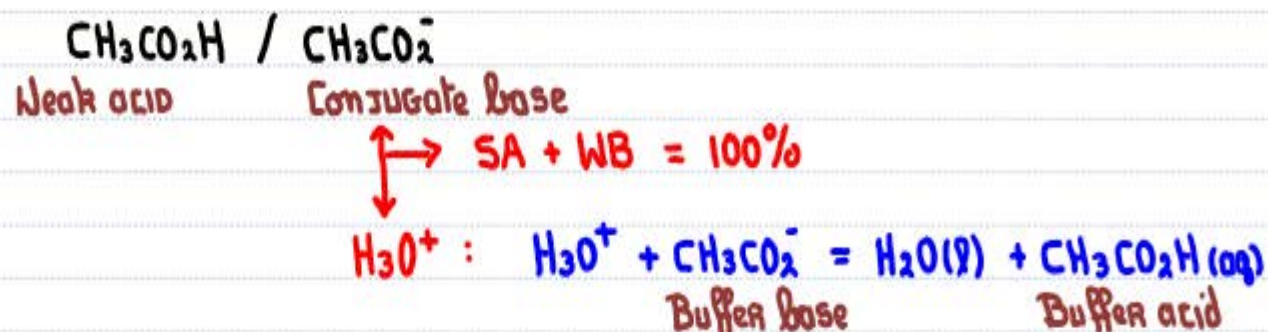 CH₃CO₂H / CH₃CO₂⁻
Weak acid Conjugate base
SA + WB = 100%
H₃O⁺ : H₃O⁺ + CH₃CO₂⁻ = H₂O(l) + CH₃CO₂H (aq)
Buffer base Buffer acid